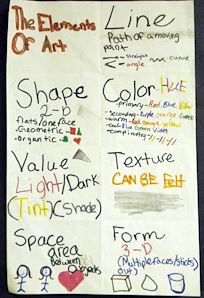 The Elements
Of Art
Line
Path of a moving
point
straight
angle
curve
Shape
2-D
flats/one face
Geometric
organic
Color HUE
primary-Red, Blue, Yellow
secondary-Purple orange Green
warm-Red orange yellow
Value
Light/Dark
(Tint) (Shade)
Texture
CAN BE Felt
Space
area
between
objects
Form
3-D
(Multiple faces/sticks
out)